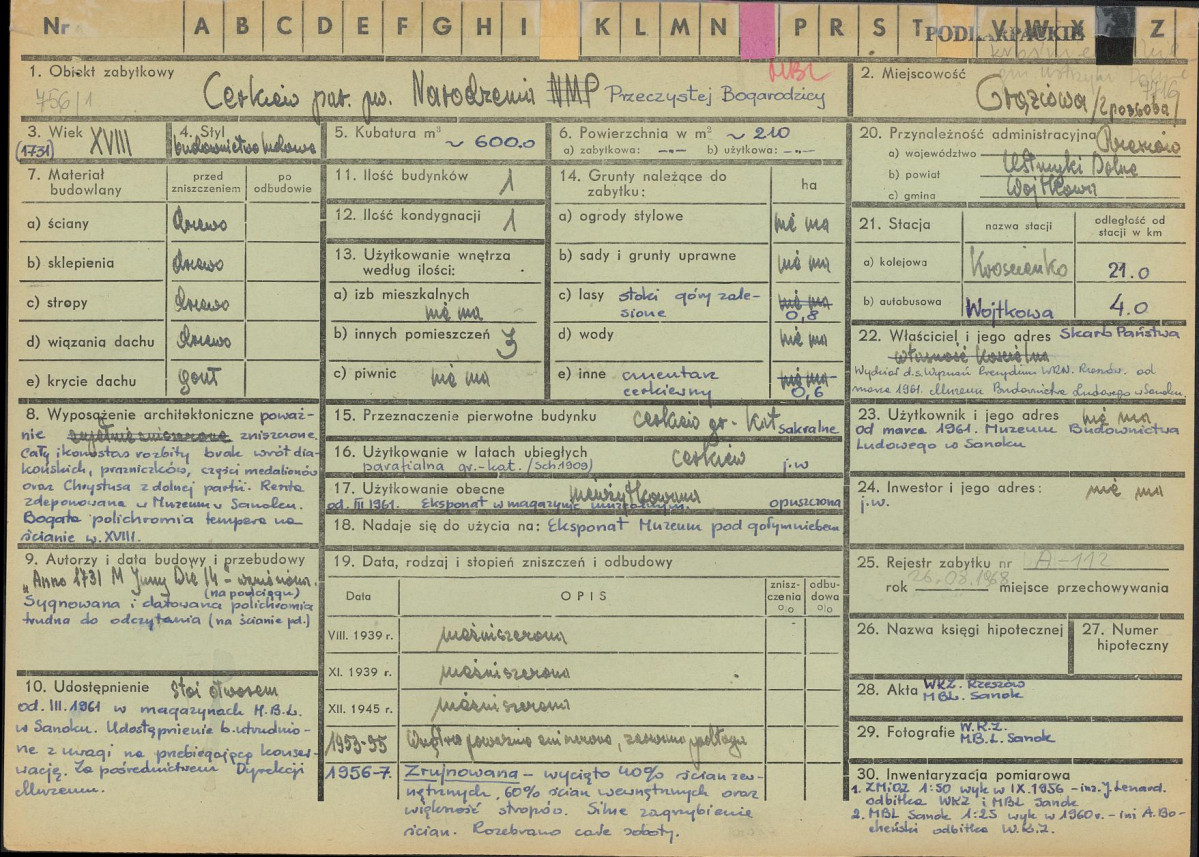 Nr A B C D E F G H I K L M N P R S T V W X Z
PODKARPACKIE
MBL
1. Obiekt zabytkowy
756/1
Cerkiew par. pw. Narodzenia NMP Przeczystej Bogarodzicy
2. Miejscowość
Grąziowa
3. Wiek
(1731) XVIII
4. Styl
budownictwo ludowe
5. Kubatura m³
~ 600.0
6. Powierzchnia w m² ~ 210
a) zabytkowa: —„— b) użytkowa: —„—
20. Przynależność administracyjna
a) województwo Rzeszów
b) powiat Ustrzyki Dolne
c) gmina Wojtkowa
7. Materiał budowlany
przed zniszczeniem
po odbudowie
a) ściany drewo
b) sklepienia drewo
c) stropy drewo
d) wiązania dachu drewo
e) krycie dachu gont
11. Ilość budynków 1
12. Ilość kondygnacji 1
13. Użytkowanie wnętrza według ilości:
a) izb mieszkalnych
nie ma
b) innych pomieszczeń 3
c) piwnic nie ma
14. Grunty należące do zabytku:
ha
a) ogrody stylowe nie ma
b) sady i grunty uprawne nie ma
c) lasy stoki góry zale- nie ma
sione 0,8
d) wody nie ma
e) inne cmentarz nie ma
cerkiewny 0,6
21. Stacja
nazwa stacji
odległość od stacji w km
a) kolejowa Krościenko 21.0
b) autobusowa Wojtkowa 4.0
22. Właściciel i jego adres Skarb Państwa
własność kościelna
Wydział d.s. Wyznań Prezydium WRN. Rzeszów. od
marca 1961. Muzeum Budownictwa Ludowego w Sanoku.
8. Wyposażenie architektoniczne poważ-
nie zniszczone.
Cały ikonostas rozbity brak wrót dia-
końskich, prazniczków, części medalionów
oraz Chrystusa z dolnej partii. Reszta
zdeponowana w Muzeum w Sanoku.
Bogata polichromia tempera na
ścianie w. XVIII.
15. Przeznaczenie pierwotne budynku cerkiew gr.-kat sakralne
16. Użytkowanie w latach ubiegłych cerkiew j.w
parafialna gr.-kat. /Sch.1909/
17. Użytkowanie obecne nieużytkowana opuszczona
od. III 1961. Eksponat w magazynie muzealnym.
18. Nadaje się do użycia na: Eksponat Muzeum pod gołym niebem
23. Użytkownik i jego adres nie ma
od marca 1961. Muzeum Budownictwa
Ludowego w Sanoku
24. Inwestor i jego adres: nie ma
j.w.
9. Autorzy i data budowy i przebudowy
"Anno 1731 M Juny Die 14"
(na pociągu)
Sygnowana i datowana polichromia
trudna do odczytania (na ścianie pd.)
19. Data, rodzaj i stopień zniszczeń i odbudowy
Data
OPIS
znisz-
czenia
%
odbu-
dowa
%
VIII. 1939 r. niezniszczona
XI. 1939 r. niezniszczona
XII. 1945 r. niezniszczona
1953-55 Wnętrze poważnie zniszczone,
1956-7. Zrujnowana - wycięto 40% ścian zew-
nętrznych, 60% ścian wewnętrznych oraz
większość stropów. Silne zagrzybienie
ścian. Rozebrano całe soboty.
25. Rejestr zabytku nr A-112
rok 26.08.1968 miejsce przechowywania
26. Nazwa księgi hipotecznej
27. Numer hipoteczny
10. Udostępnienie Stoi otworem
od. III. 1961 w magazynach M.B.L.
w Sanoku. Udostępnienie b. utrudnio-
ne z uwagi na przebiegającą konser-
wację. Za pośrednictwem Dyrekcji
Muzeum.
28. Akta WKZ. Rzeszów
MBL. Sanok
29. Fotografie W.K.Z.
M.B.L. Sanok
30. Inwentaryzacja pomiarowa
1. ZMiOZ 1:50 wyk w IX. 1956 - inż. J Lenard.
odbitka WKZ i MBL Sanok
2. MBL Sanok 1:25 wyk w 1960 r. - inż A. Bo-
cheński odbitka W.K.Z.